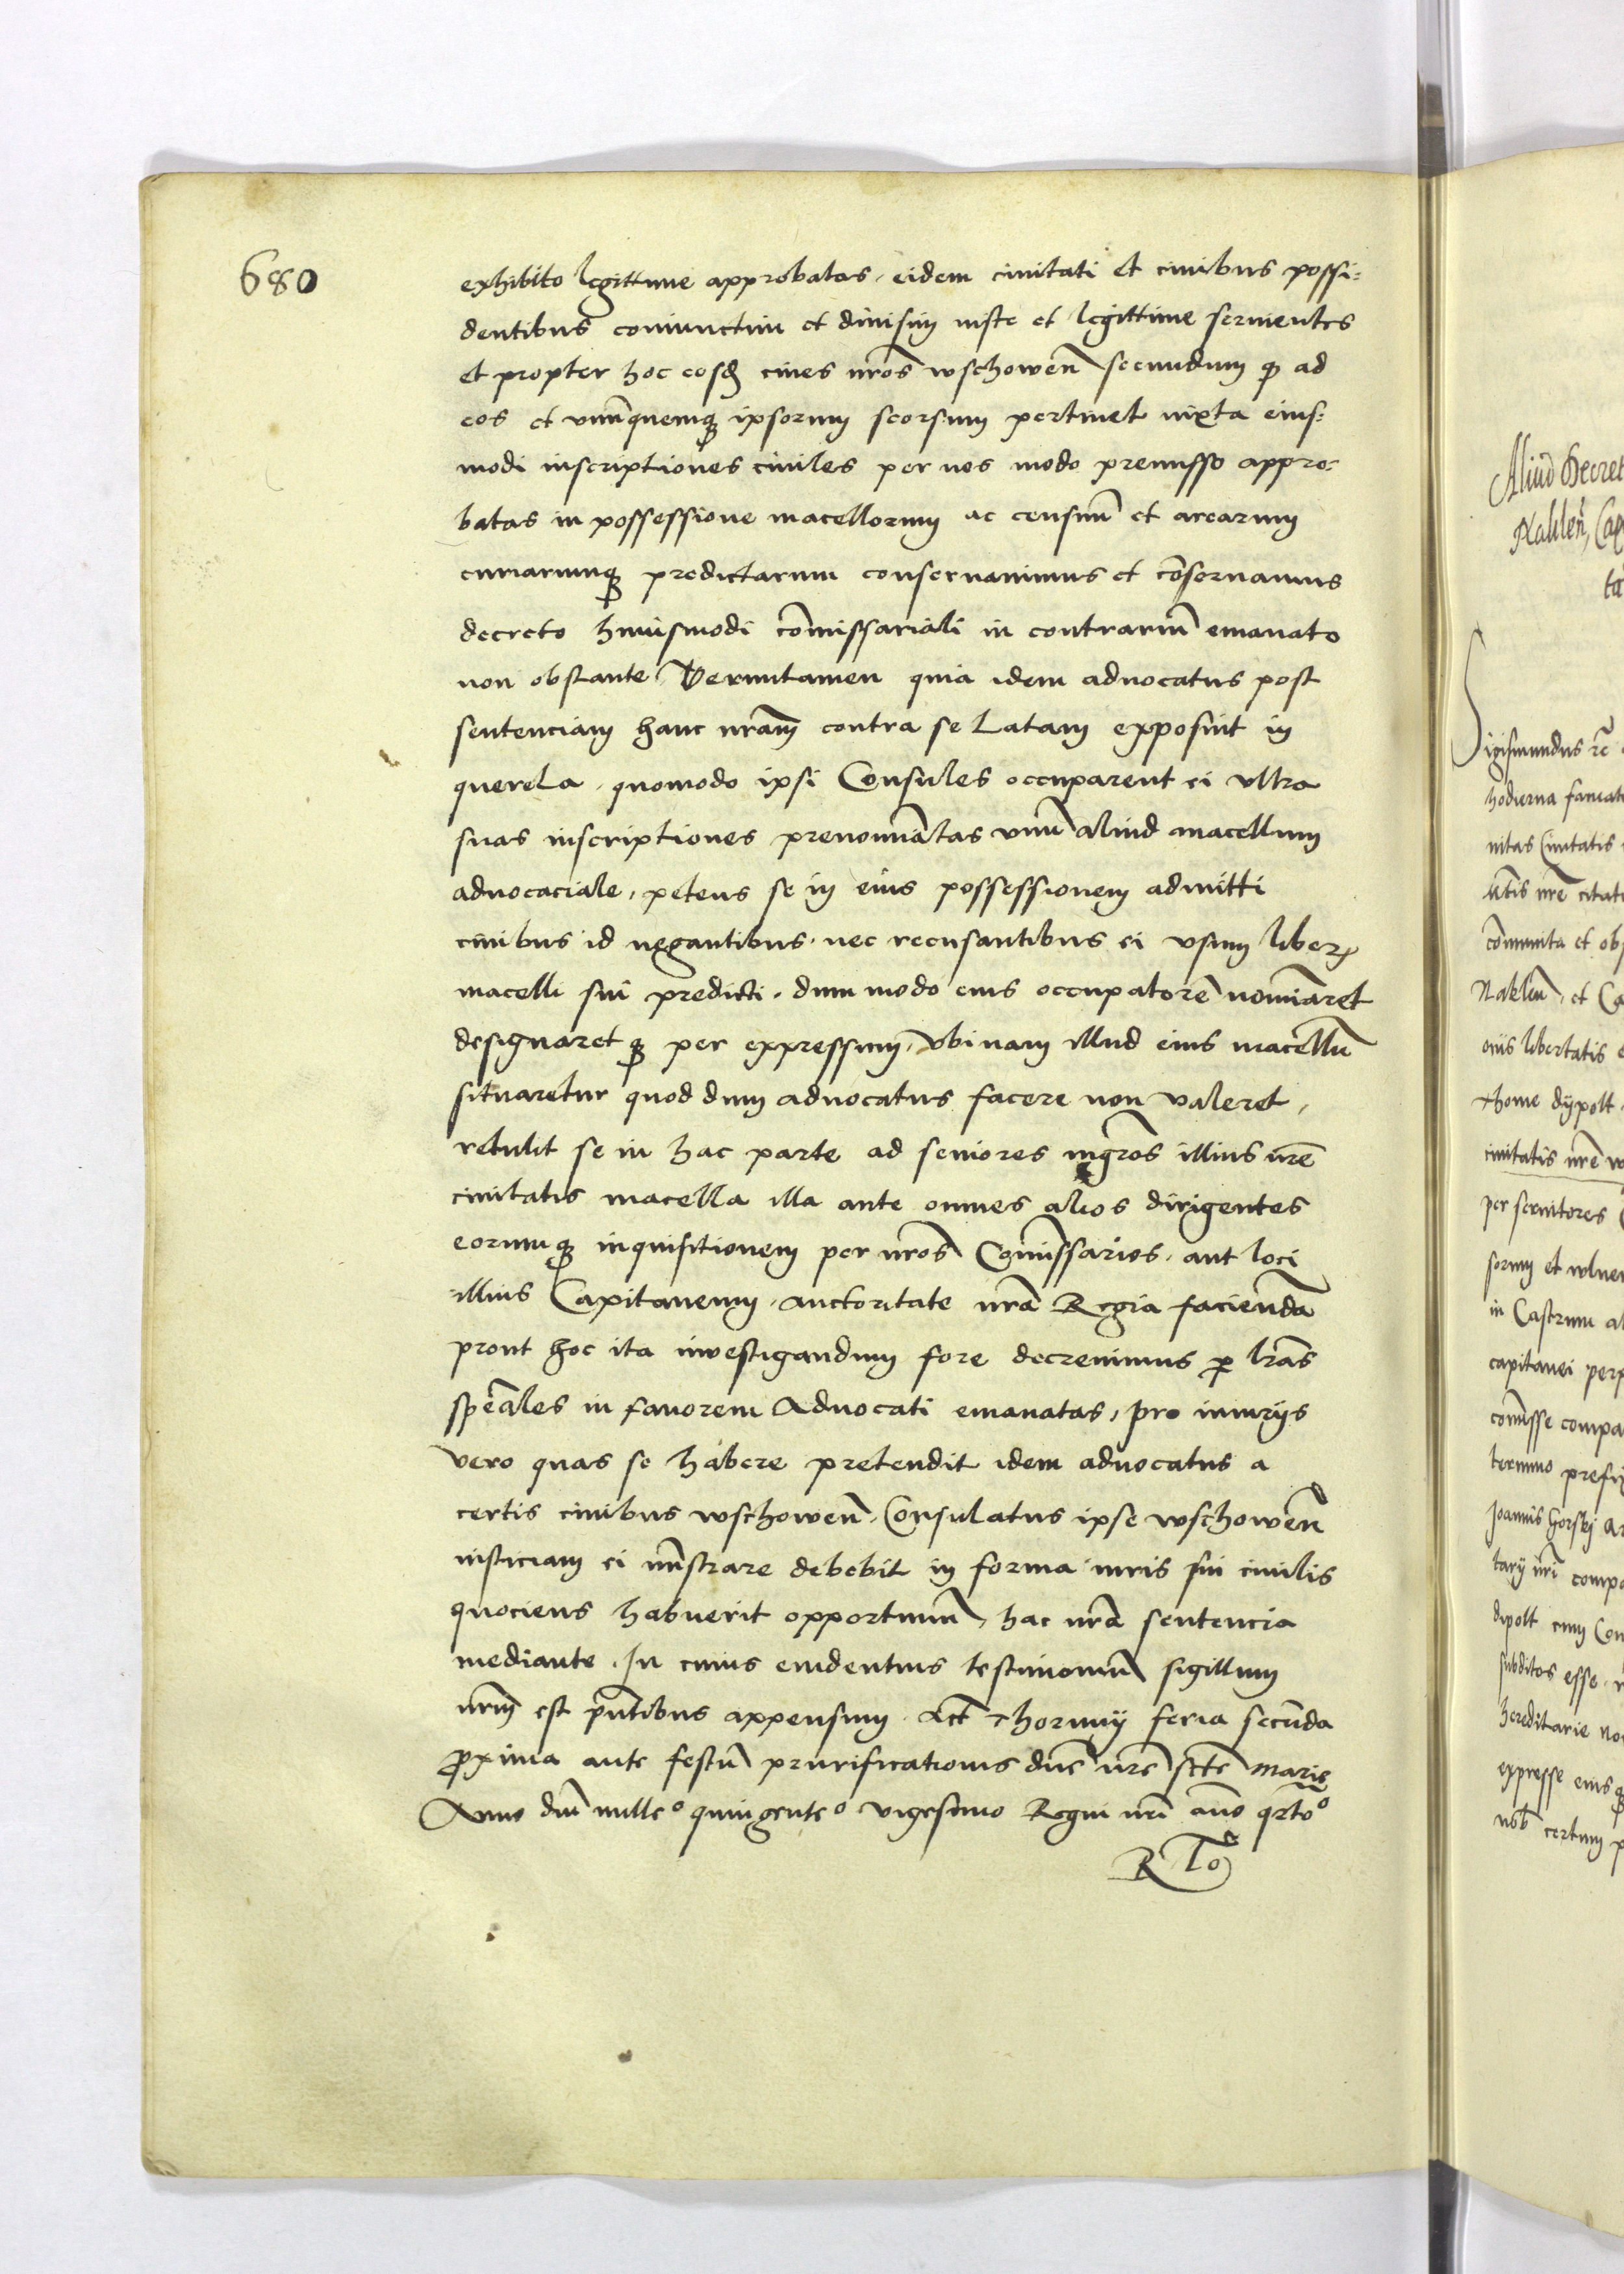 680
exhibito legittime approbatas, eidem ciuitati et ciuibus possi=
dentibus coniunctim et diuisim iuste et legittime seruientes
et propter hoc eosd ciues nros wschowen̄ secundum q ad
eos et vnūquemq ipsorum seorsum pertinet iuxta eius=
modi inscriptiones ciuiles per nos modo premisso appro=
batas in possessione macellorum ac censuū et arearum
curiarumq predictarum conseruauimus et cōseruamus
decreto huiusmodi cōmissariali in contrariū emanato
non obstante. Verumtamen quia idem aduocatus post
sentenciam hanc nrām contra se Latam exposuit in
querela, quomodo ipsi Consules occuparent ei vltra
suas inscriptiones prenominātas vnū aliud macellum
aduocaciale, petens se in eius possessionem admitti
ciuibus id negantibus, nec recusantibus ei vsum liberū
macelli sui predicti, dum modo eius occupatorē nomiāret
designaretq per expressum, vbinam illud eius macellū
situaretur quod dum aduocatus facere non valeret,
retulit se in hac parte ad seniores mgros illius nrē
ciuitatis macella illa ante omnes alios dirigentes
eorumq inquisitionem per nros Comissarios, aut loci
illius Capitaneum, auctoritate nrā Regia faciendā
prout hoc ita inuestigandum fore decreuimus p lrās
spēales in fauorem Aduocati emanatas, pro iniurijs
vero quas se habere pretendit idem aduocatus a
certis ciuibus wschowen̄, Consulatus ipse wschowen̄
iusticiam ei mīstrare debebit in forma iuris sui ciuilis
quociens habuerit opportunū, hac nrā sentencia
mediante. In cuius euidentius testimoniū sigillum
nrm̄ est pn̄tibus appensum. Act Thorunij feria secūda
pxima ante festū prurificationis dn̄e nrē scte Marie
Anno dn̄i mille° quingente° vigesimo Regni nri an̄o qrto°
R To
Aliud Decret
Naklen̄, Cap
ta
Sigismundus rc
hodierna famat
nitas Ciuitatis
ātis nrē citat
cōmunita et ob
Naklen̄, et Ca
oīs libertatis
Thome dypolt
ciuitatis nrē w
per seruitores
sorum et vlner
in Castrum a
capitanei per
comisse compa
termino prefi
Joannis Gorskj a
tarij nri comp
dipolt cum Con
subditos esse
hereditarie no
expresse eius
nob certum p